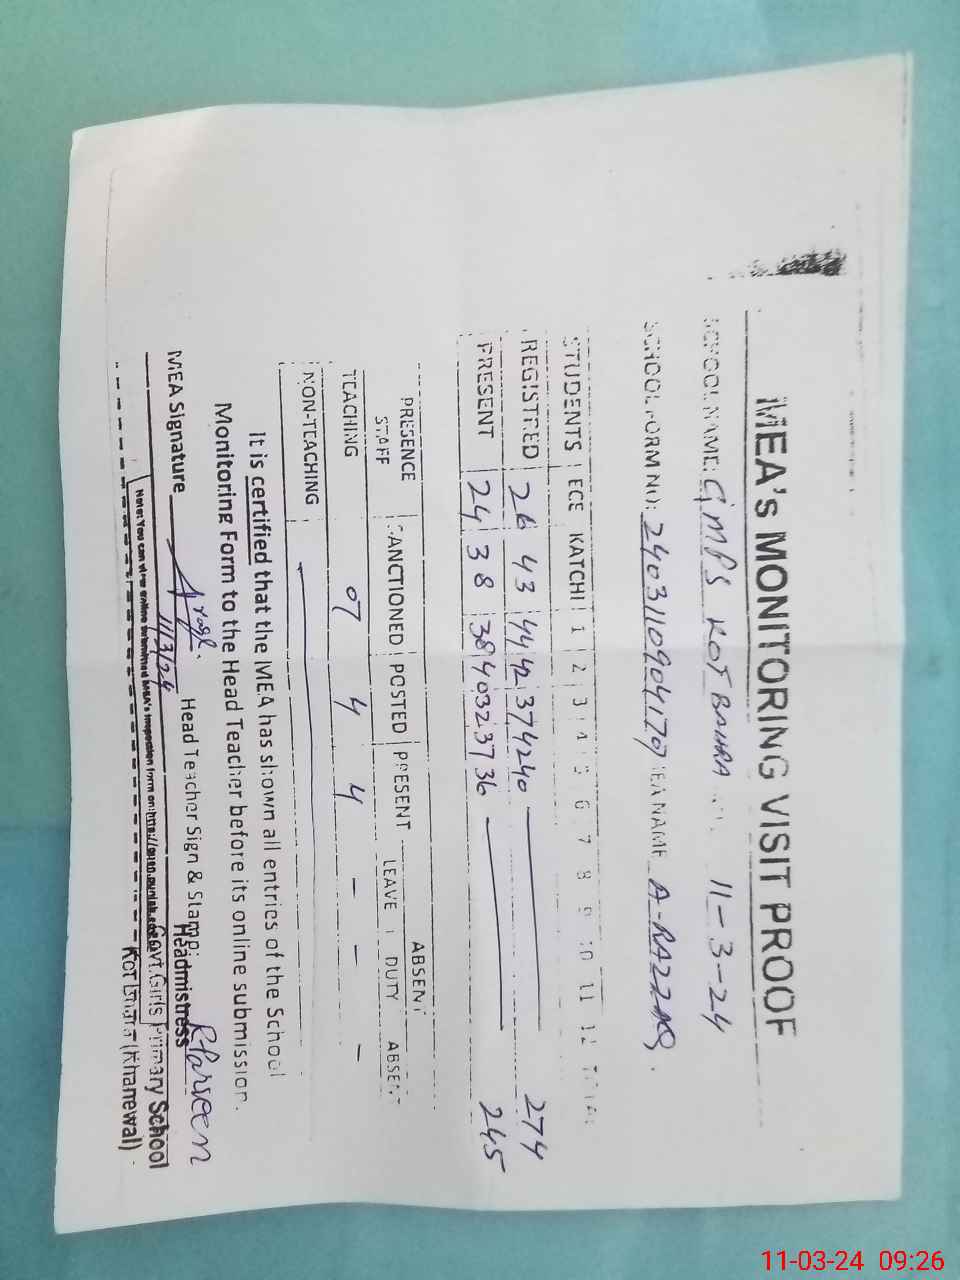 MEA's MONITORING VISIT PROOF
SCHOOL NAME: GMPS KOT BAHRA 11-3-24
SCHOOL FORM NO: MEA NAME A-RAZZAQ.
STUDENTS ECE KATCHI 1 2 3 4 5 6 7 8 9 10 11 12 TOTAL
REGISTRED 26 43 44 42 37 42 40 274
PRESENT 24 38 38 40 32 37 36 245
PRESENCE ABSENT
STAFF SANCTIONED POSTED PRESENT LEAVE DUTY ABSENT
TEACHING 07 4 4 - - -
NON-TEACHING
It is certified that the MEA has shown all entries of the School
Monitoring Form to the Head Teacher before its online submission.
MEA Signature 11/3/24 Head Teacher Sign & Stamp: R Parveen
Headmistress
Govt. Girls Primary School
(Khanewal)
Note: You can view online submitted MEA's inspection form on:
11-03-24 09:26